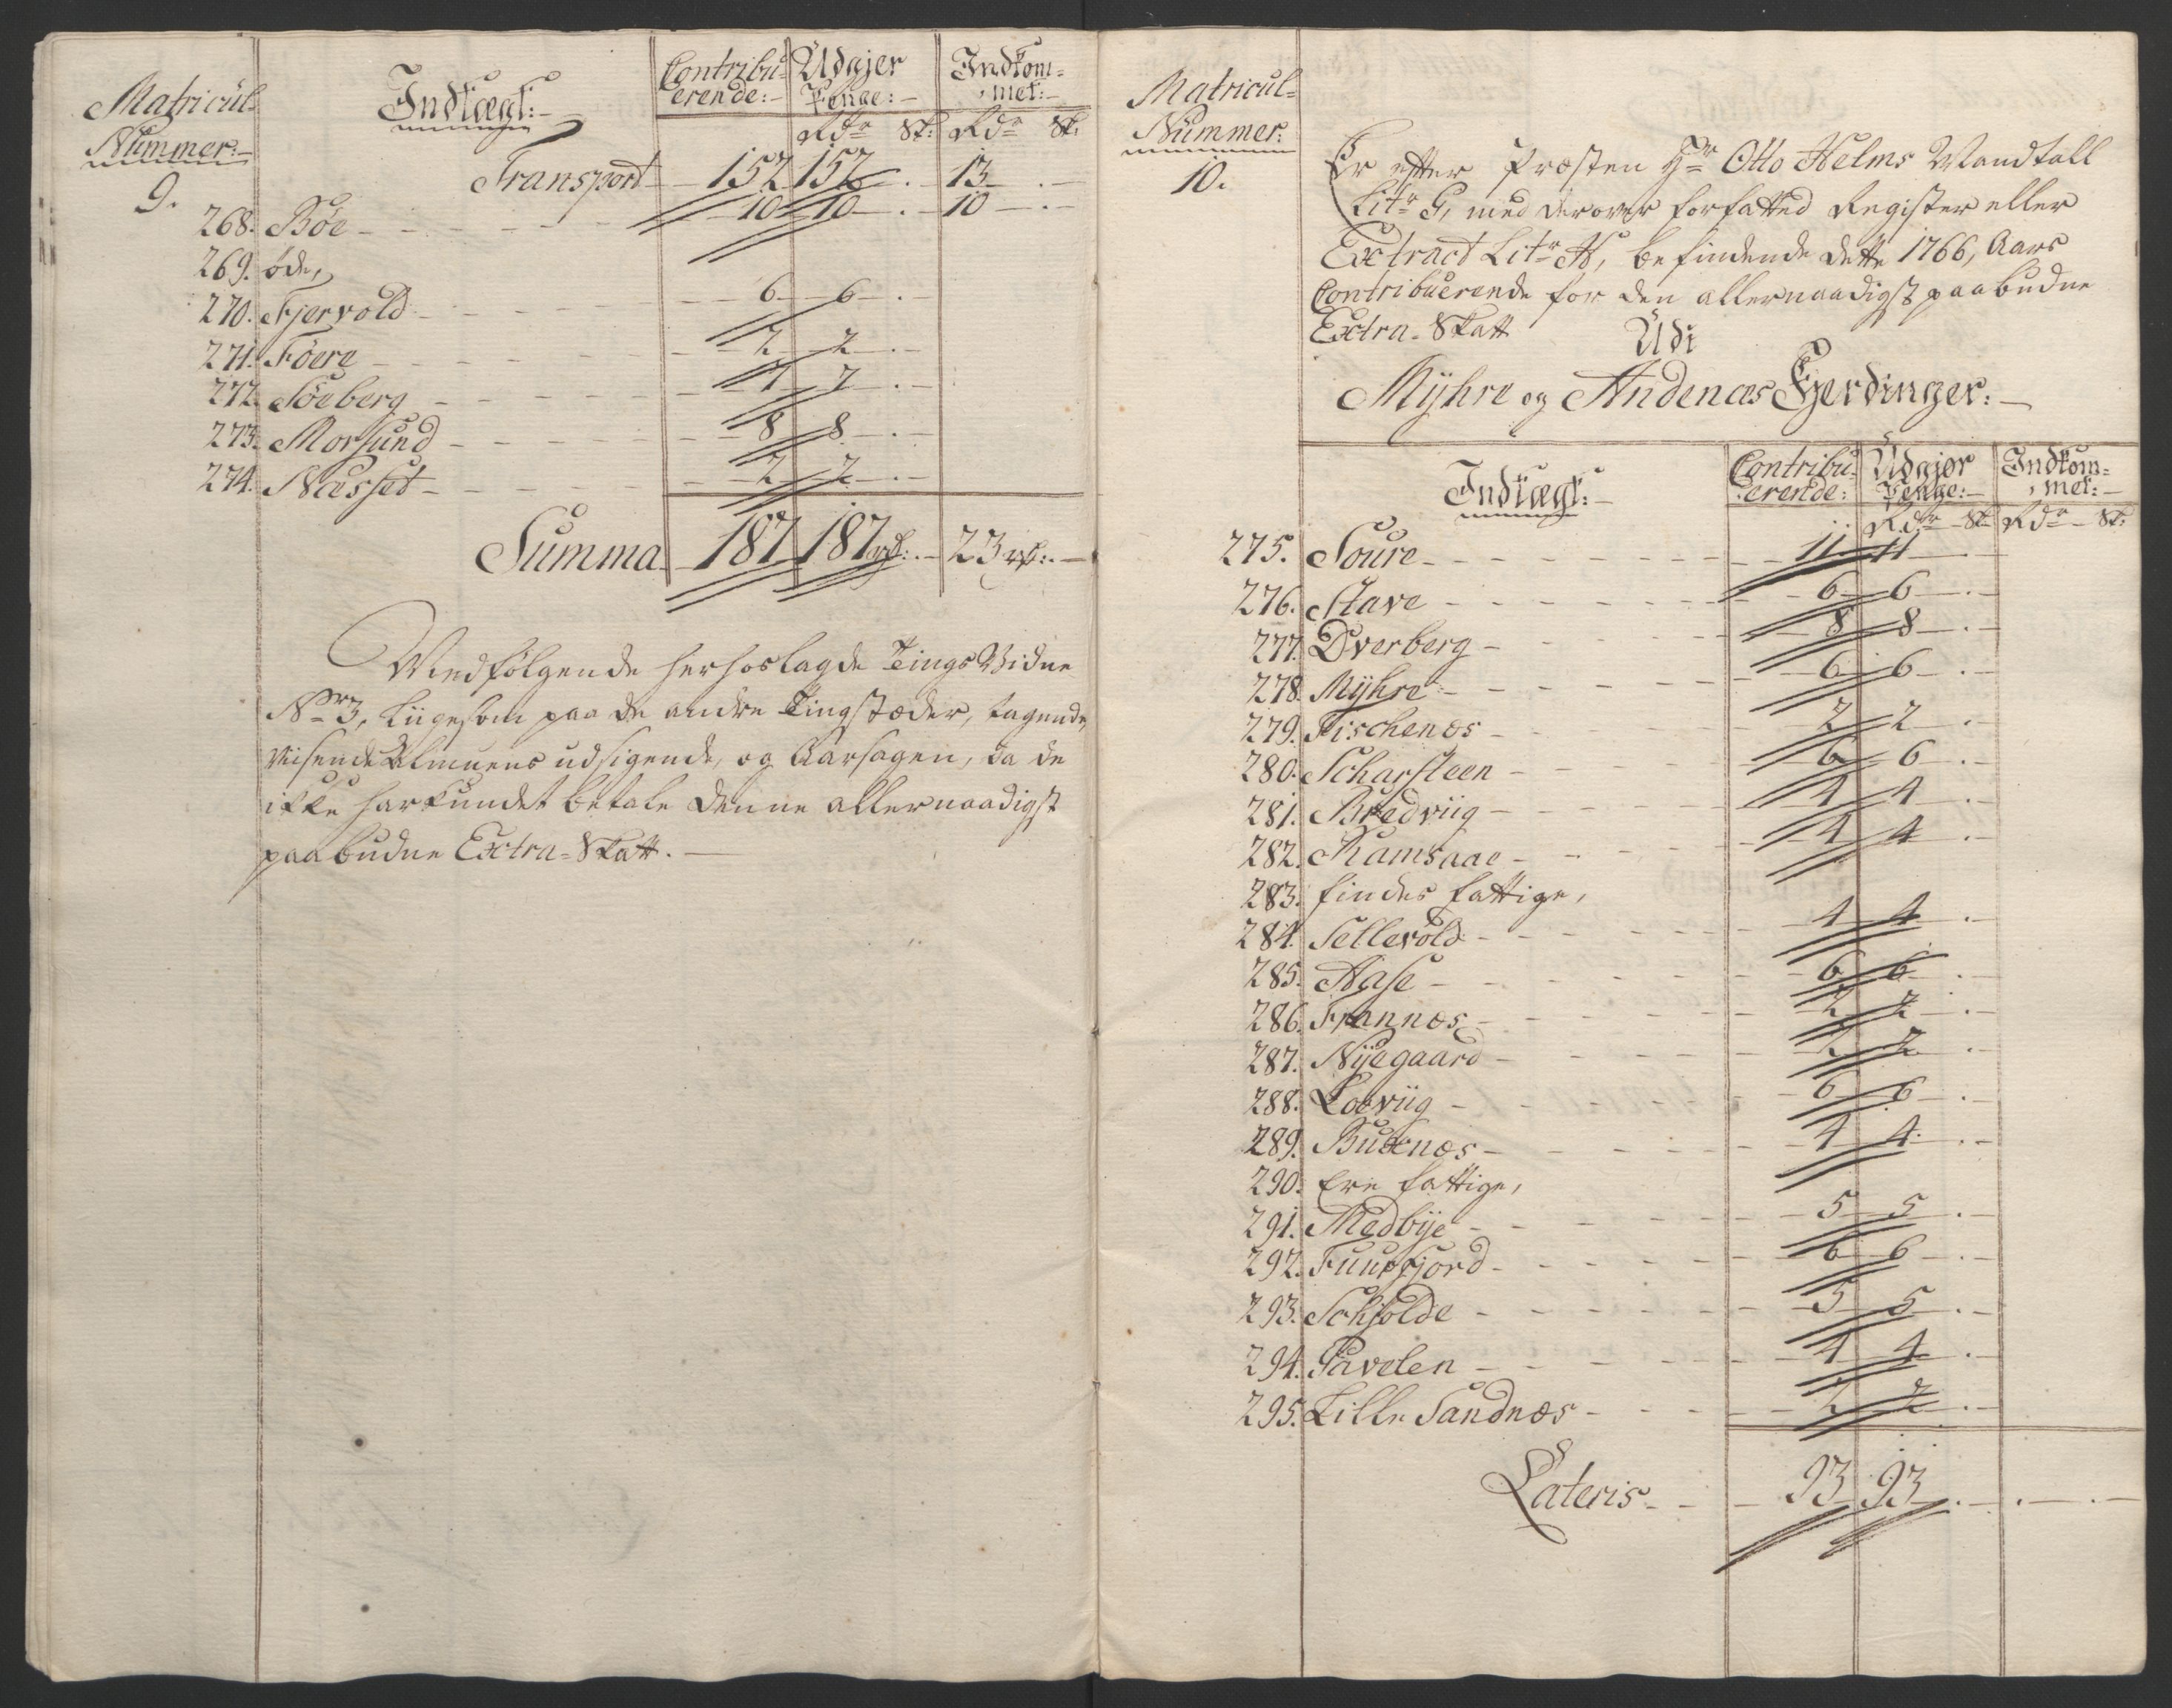 Matricül-
Nummer:-
9.
Indtægt:-
Contribu-
erende:-
Udgjør
Penge:-
Indkom-
met:-
Rdr Sk: Rdr Sk:
Transport - 152 152 . - 13 . -
268. Bøe - 10 10 . - 10 . -
269. øde,
270. Fjervold - 6 6 . -
271. Føere - 2 2 . -
272. Søeberg - 7 7 . -
273. Morsund - 8 8 . -
274. Næsset - 2 2 . -
Summa - 187 187 rd: - 23 rd: -
Medfølgende herhoslagde Tings Vidne
Nr 3, liigesom paa de andre Tingstæder, tagende,
viisende Almuens udsigende, og Aarsagen, da de
ikke har kundet betale denne allernaadigst
paabudne Extra-Skatt. -
Matricul-
Nummer:
10.
Er efter Præsten Hr Otto Helms Mandtall
Litr G, med derover forfatted Register eller
Extract Litr H, befindende dette 1766, Aars
Contribuerende for den allernaadigst paabudne
Extra-Skatt
Udi
Mÿhre og Andenæs Fjerdinger:-
Indtægt:-
Contribu-
erende:
Udgjør
Penge:-
Indkom-
met:-
Rdr - Sk: Rdr - Sk:
275. Soure - 11 11 . -
276. Stave - 6 6 . -
277. Dverberg - 8 8 . -
278. Mÿhre - 6 6 . -
279. Fischenæs - 2 2 . -
280. Scharsteen - 6 6 . -
281. Bredviig - 4 4 . -
282. Ramsaae - 4 4 . -
283. findes fattige,
284. Sellevold - 4 4 . -
285. Aase - 6 6 . -
286. Frannæs - 2 2 . -
287. Nÿegaard - 2 2 . -
288. Loviig - 6 6 . -
289. Buenæs - 4 4 . -
290. Ere fattige,
291. Medbÿe - 5 5 . -
292. Fuusfjord - 6 6 . -
293. Schjolde - 5 5 . -
294. Gavelen - 4 4 . -
295. Lille Sandnæs - 2 2 . -
Lateris - 93 93 . - . -